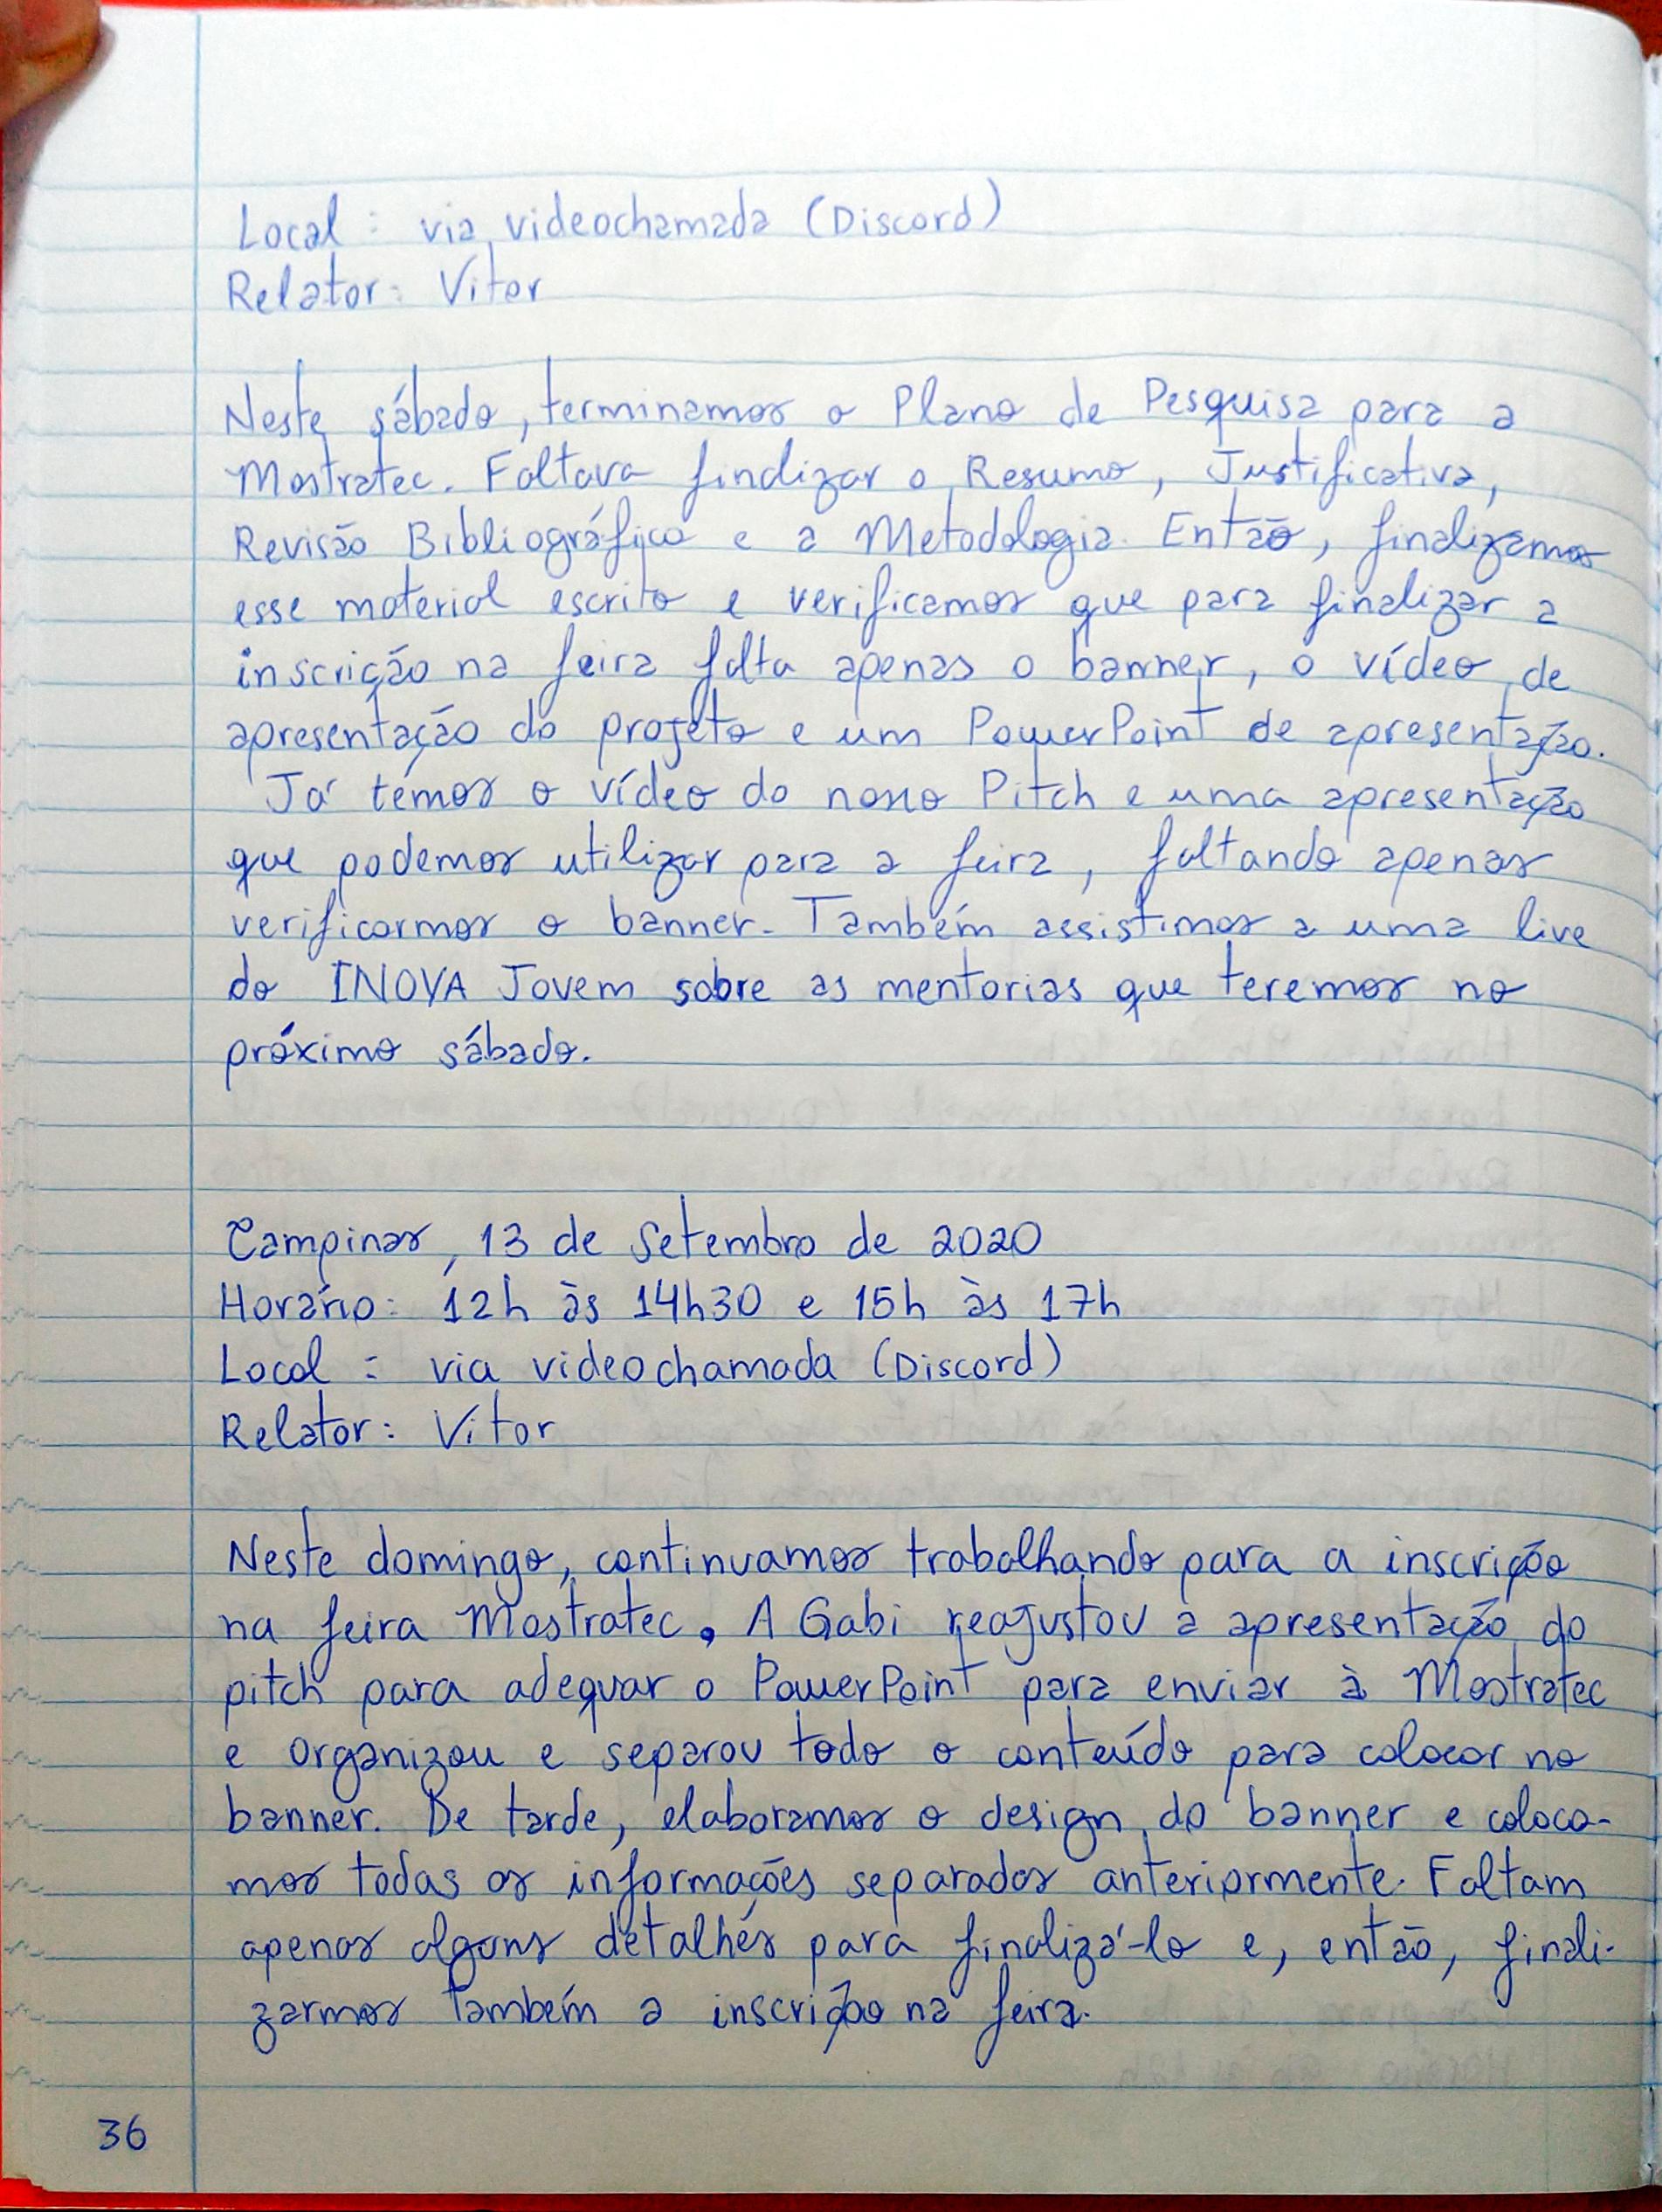 Local: via videochamada (Discord)
Relator: Vitor
Neste sábado, terminamos o Plano de Pesquisa para a
Mostratec. Faltava finalizar o Resumo, Justificativa,
Revisão Bibliográfica e a Metodologia. Então, finalizamos
esse material escrito e verificamos que para finalizar a
inscrição na feira falta apenas o banner, o vídeo de
apresentação do projeto e um PowerPoint de apresentação.
Já temos o vídeo do nosso Pitch e uma apresentação
que podemos utilizar para a feira, faltando apenas
verificarmos o banner. Também assistimos a uma live
do INOVA Jovem sobre as mentorias que teremos no
próximo sábado.
Campinas, 13 de Setembro de 2020
Horário: 12h às 14h30 e 15h às 17h
Local: via videochamada (Discord)
Relator: Vitor
Neste domingo, continuamos trabalhando para a inscrição
na feira Mostratec. A Gabi reajustou a apresentação do
pitch para adequar o PowerPoint para enviar à Mostratec
e organizou e separou todo o conteúdo para colocar no
banner. De tarde, elaboramos o design do banner e coloca-
mos todas as informações separadas anteriormente. Faltam
apenas alguns detalhes para finalizá-lo e, então, finali-
zarmos também a inscrição na feira.
36